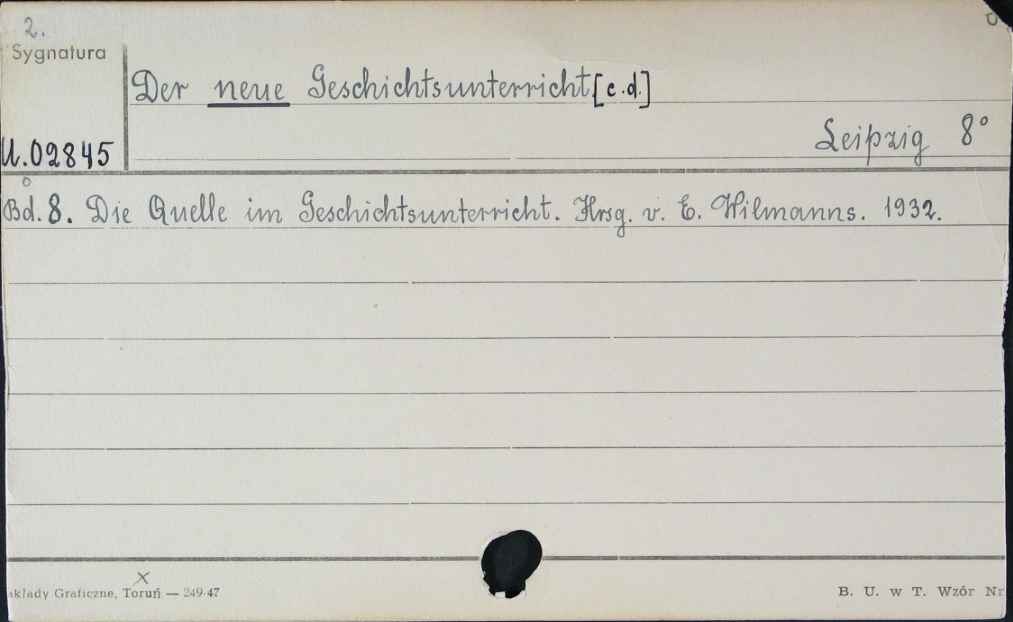 2.
Sygnatura
Der neue Geschichtsunterricht [c.d.]
Leipzig 8°
U.02845
Bd. 8. Die Quelle im Geschichtsunterricht. Hrsg. v. E. Wilmanns. 1932.
akłady Graficzne, Toruń — 249-47
B. U. w T. Wzór Nr